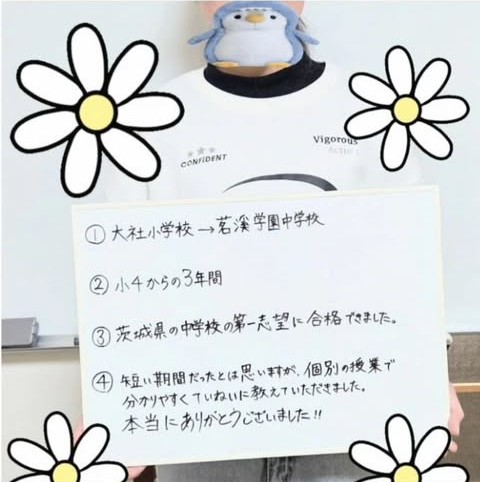 CONFIDENT
Vigorous
① 大社小学校→茗溪学園中学校
② 小4からの3年間
③ 茨城県の中学校の第一志望に合格できました。
④ 短い期間だったとは思いますが、個別の授業で
分かりやすくていねいに教えていただきました。
本当にありがとうございました!!